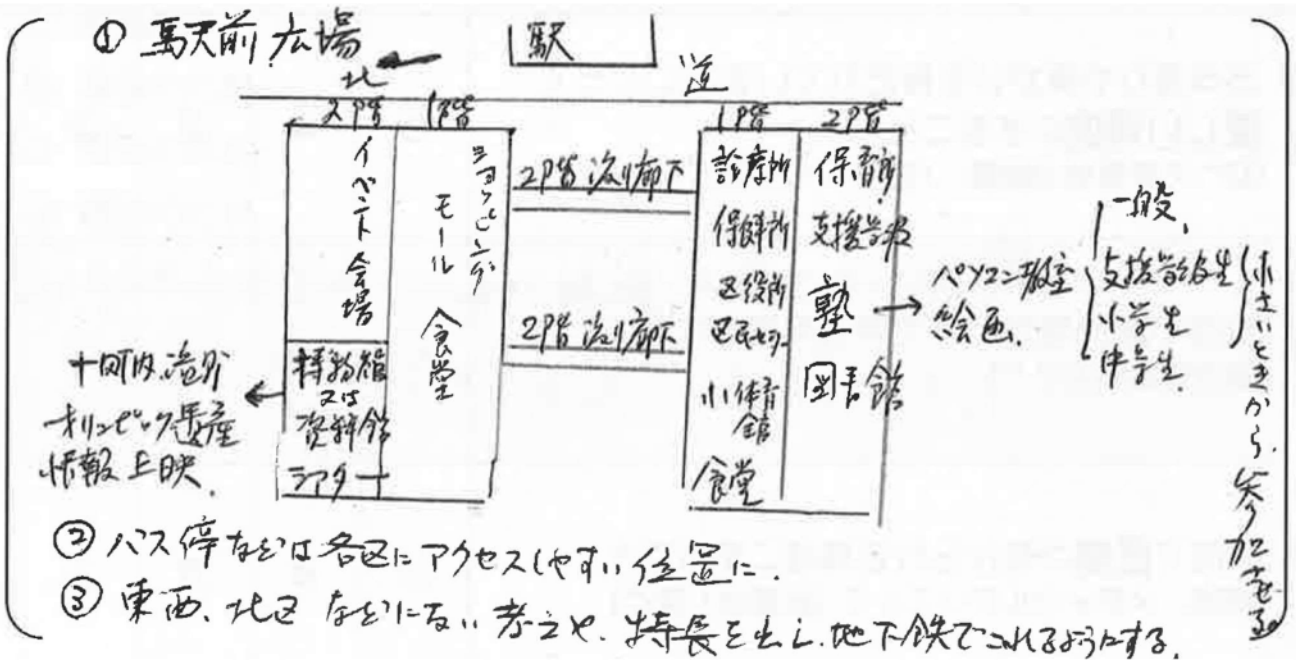 ① 駅前広場
北
駅
道
2階
1階
イベント会場
ショッピングモール
食堂
博物館
又は
資料館
シアター
オリンピック遺産
情報上映、
2階渡り廊下
2階渡り廊下
1階
2階
診療所
保健所
区役所
区民センター
小体育館
食堂
保育所
支援学級
塾
図書館
パソコン教室
絵画、
一般、
支援学級生
小学生
中学生、
小さいときから、参加させる。
② バス停などは各区にアクセスしやすい位置に、
③ 東西、北区などにない考えや、特長を出し、地下鉄でこれるようにする、